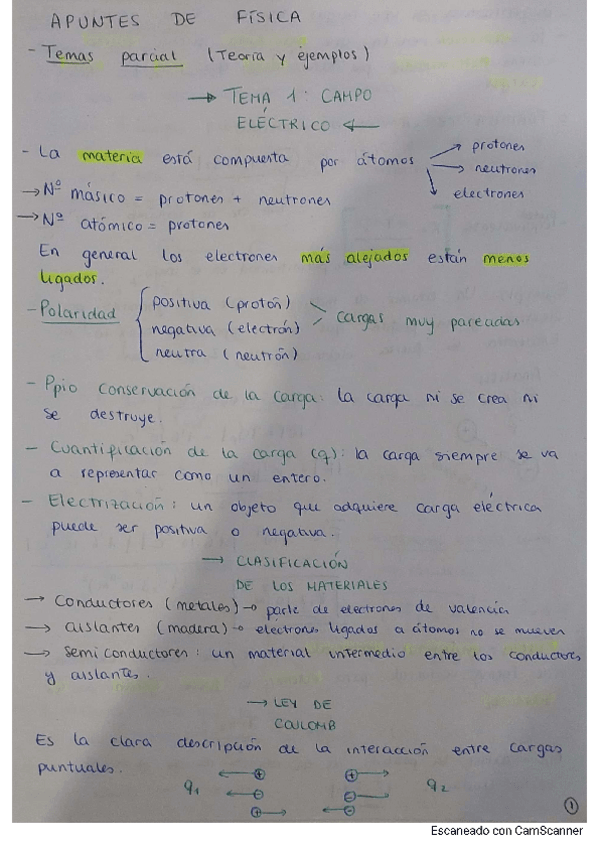 APUNTES DE FÍSICA
- Temas parcial (Teoría y ejemplos)
→ TEMA 1: CAMPO
ELÉCTRICO ←
- La materia está compuesta por átomos → protones
→ neutrones
→ electrones
→ Nº másico = protones + neutrones
→ Nº atómico = protones
En general los electrones más alejados están menos
ligados.
- Polaridad { positiva (protón)
negativa (electrón) > cargas muy parecidas
neutra (neutrón)
- Ppio conservación de la carga: la carga ni se crea ni
se destruye.
- Cuantificación de la carga (q): la carga siempre se va
a representar como un entero.
- Electrización: un objeto que adquiere carga eléctrica
puede ser positiva o negativa.
→ CLASIFICACIÓN
DE LOS MATERIALES
→ Conductores (metales) → parte de electrones de valencia
→ aislantes (madera) → electrones ligados a átomos no se mueven
→ semiconductores: un material intermedio entre los conductores
y aislantes.
→ LEY DE
COULOMB
Es la clara descripción de la interacción entre cargas
puntuales.
q₁ ← ⊕ ⊕ → q₂
← ⊖ ⊖ →
⊕ → ← ⊖
1
Escaneado con CamScanner